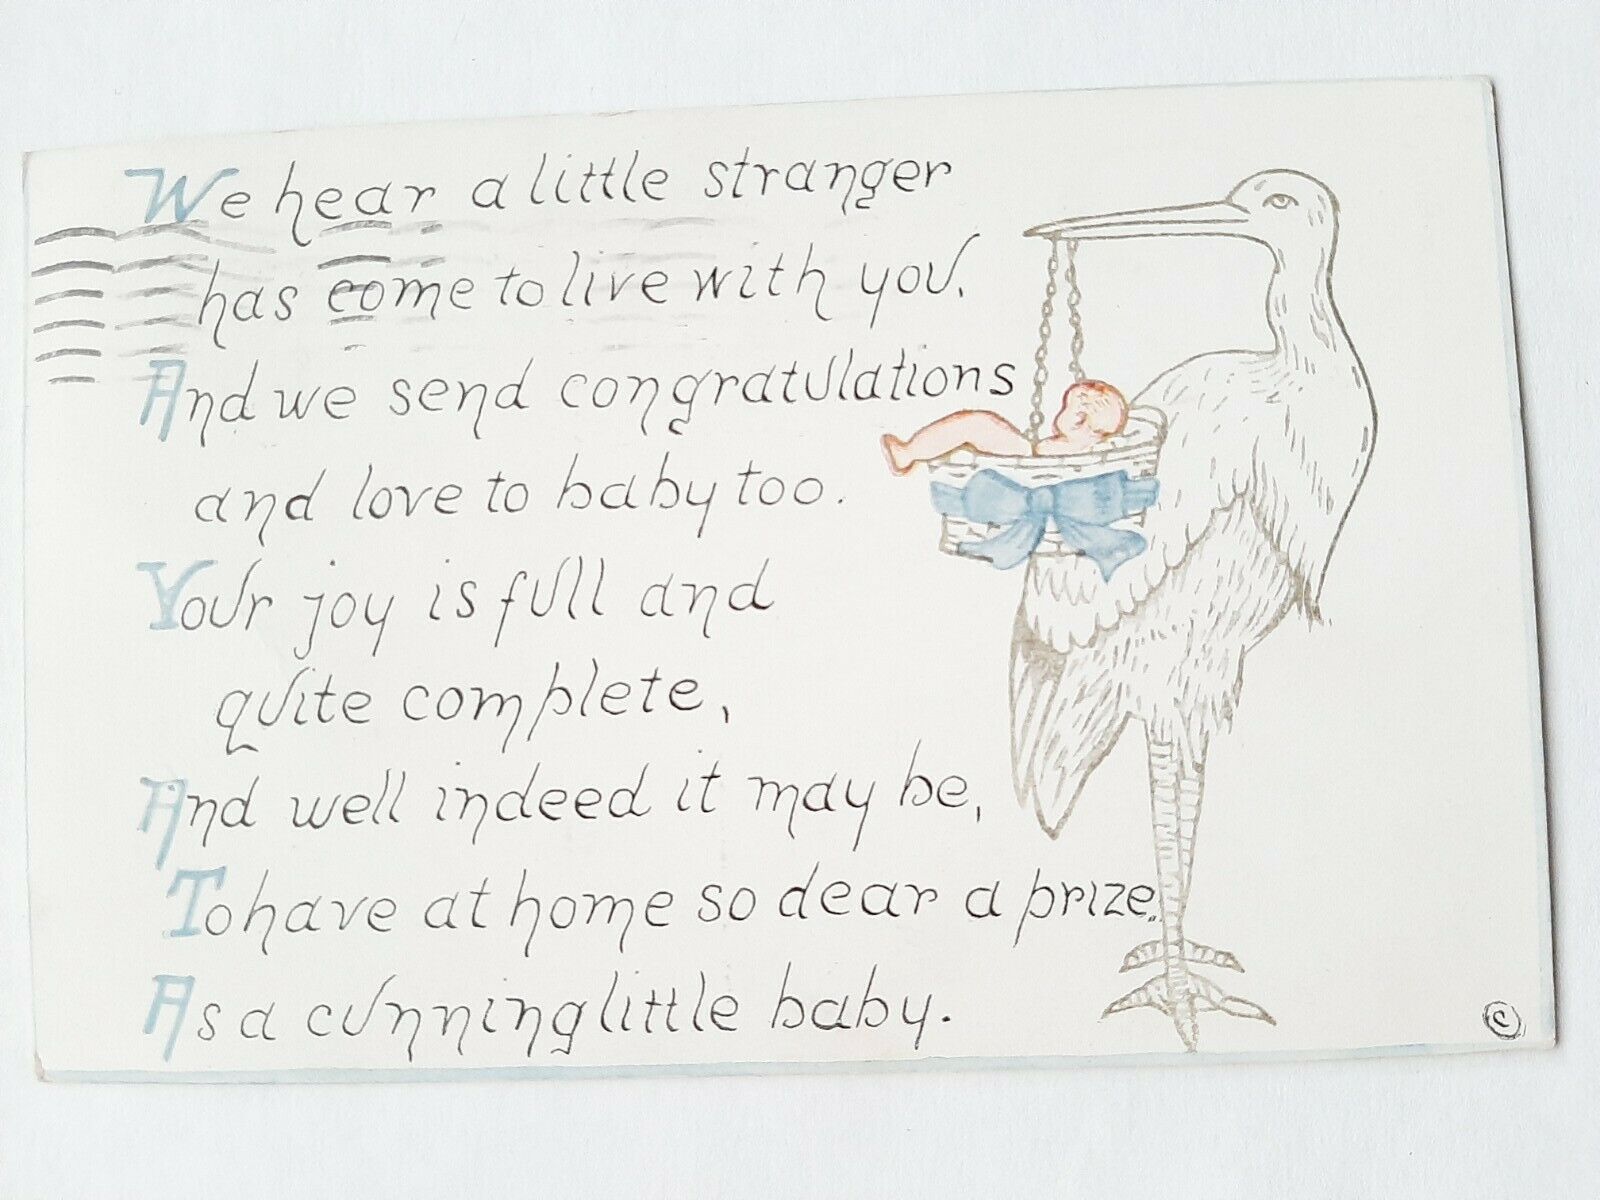 We hear a little stranger
has come to live with you.
And we send congratulations
and love to baby too.
Your joy is full and
quite complete,
And well indeed it may be,
To have at home so dear a prize
As a cunning little baby.
©